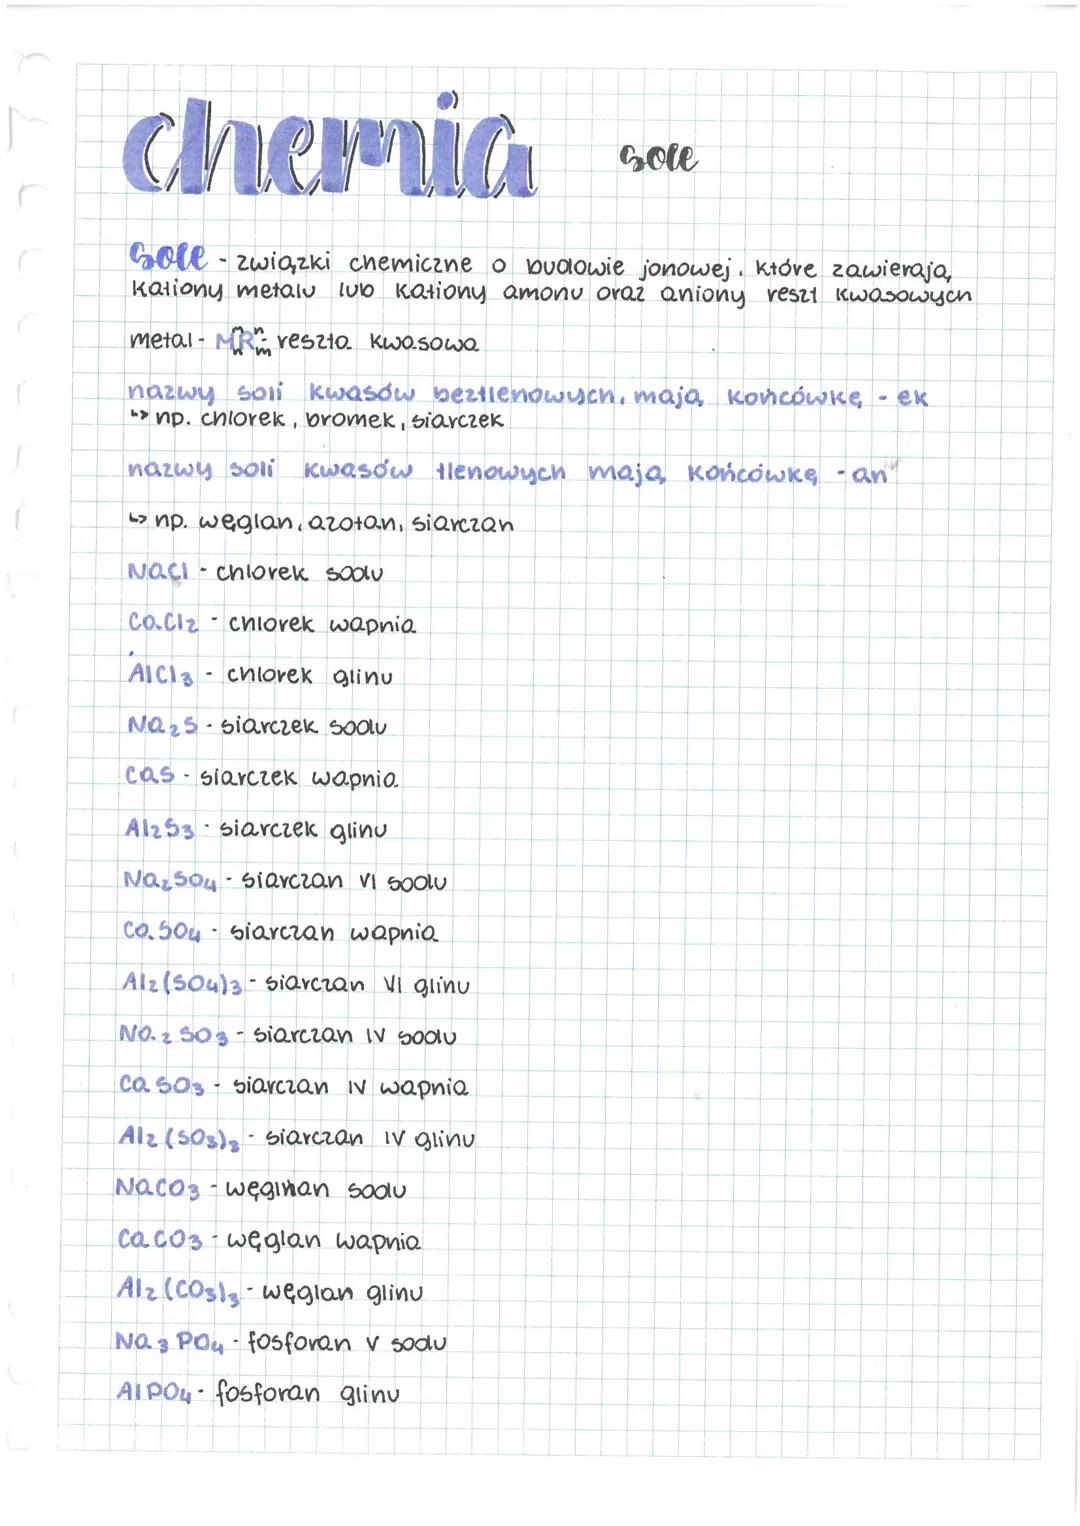 chemia sole
sole - związki chemiczne o budowie jonowej, które zawierają
kationy metalu lub kationy amonu oraz aniony reszt kwasowych
metal - MR - reszta kwasowa
nazwy soli kwasów beztlenowych, mają końcówkę - ek
↳ np. chlorek, bromek, siarczek
nazwy soli kwasów tlenowych mają końcówkę -an"
↳ np. węglan, azotan, siarczan
NaCl - chlorek sodu
CaCl₂ - chlorek wapnia
AlCl₃ - chlorek glinu
Na₂S - siarczek sodu
CaS - siarczek wapnia
Al₂S₃ - siarczek glinu
Na₂SO₄ - siarczan VI sodu
CaSO₄ - siarczan wapnia
Al₂(SO₄)₃ - siarczan VI glinu
Na₂SO₃ - siarczan IV sodu
CaSO₃ - siarczan IV wapnia
Al₂(SO₃)₃ - siarczan IV glinu
NaCO₃ - sodu
CaCO₃ - węglan wapnia
Al₂(CO₃)₃ - węglan glinu
Na₃PO₄ - fosforan V sodu
AlPO₄ - fosforan glinu